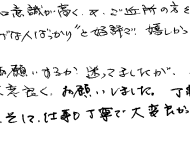 意識が高く、又、ご近所の方を
"な人ばかり"と好評で、嬉しか
お願いするか迷ってましたが、
良く、お願いしました。丁
そして、仕事も丁寧で大変良か